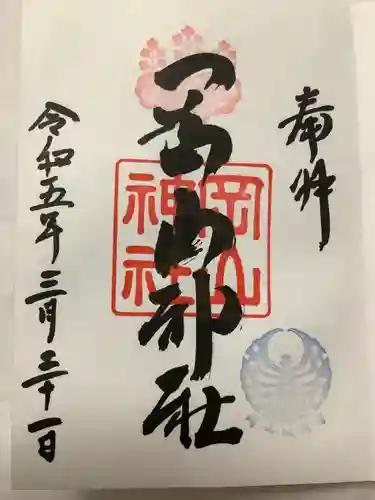 奉拝
岡山神社
岡山
神社
令和五年三月三十一日